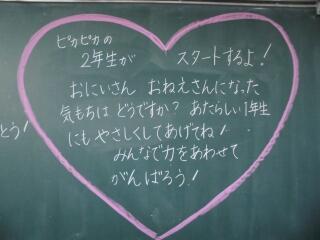 ピカピカの
2年生が スタートするよ!
おにいさん おねえさんになった
気もちは どうですか? あたらしい1年生
にも やさしくしてあげてね!
みんなで力をあわせて
がんばろう!
とう!